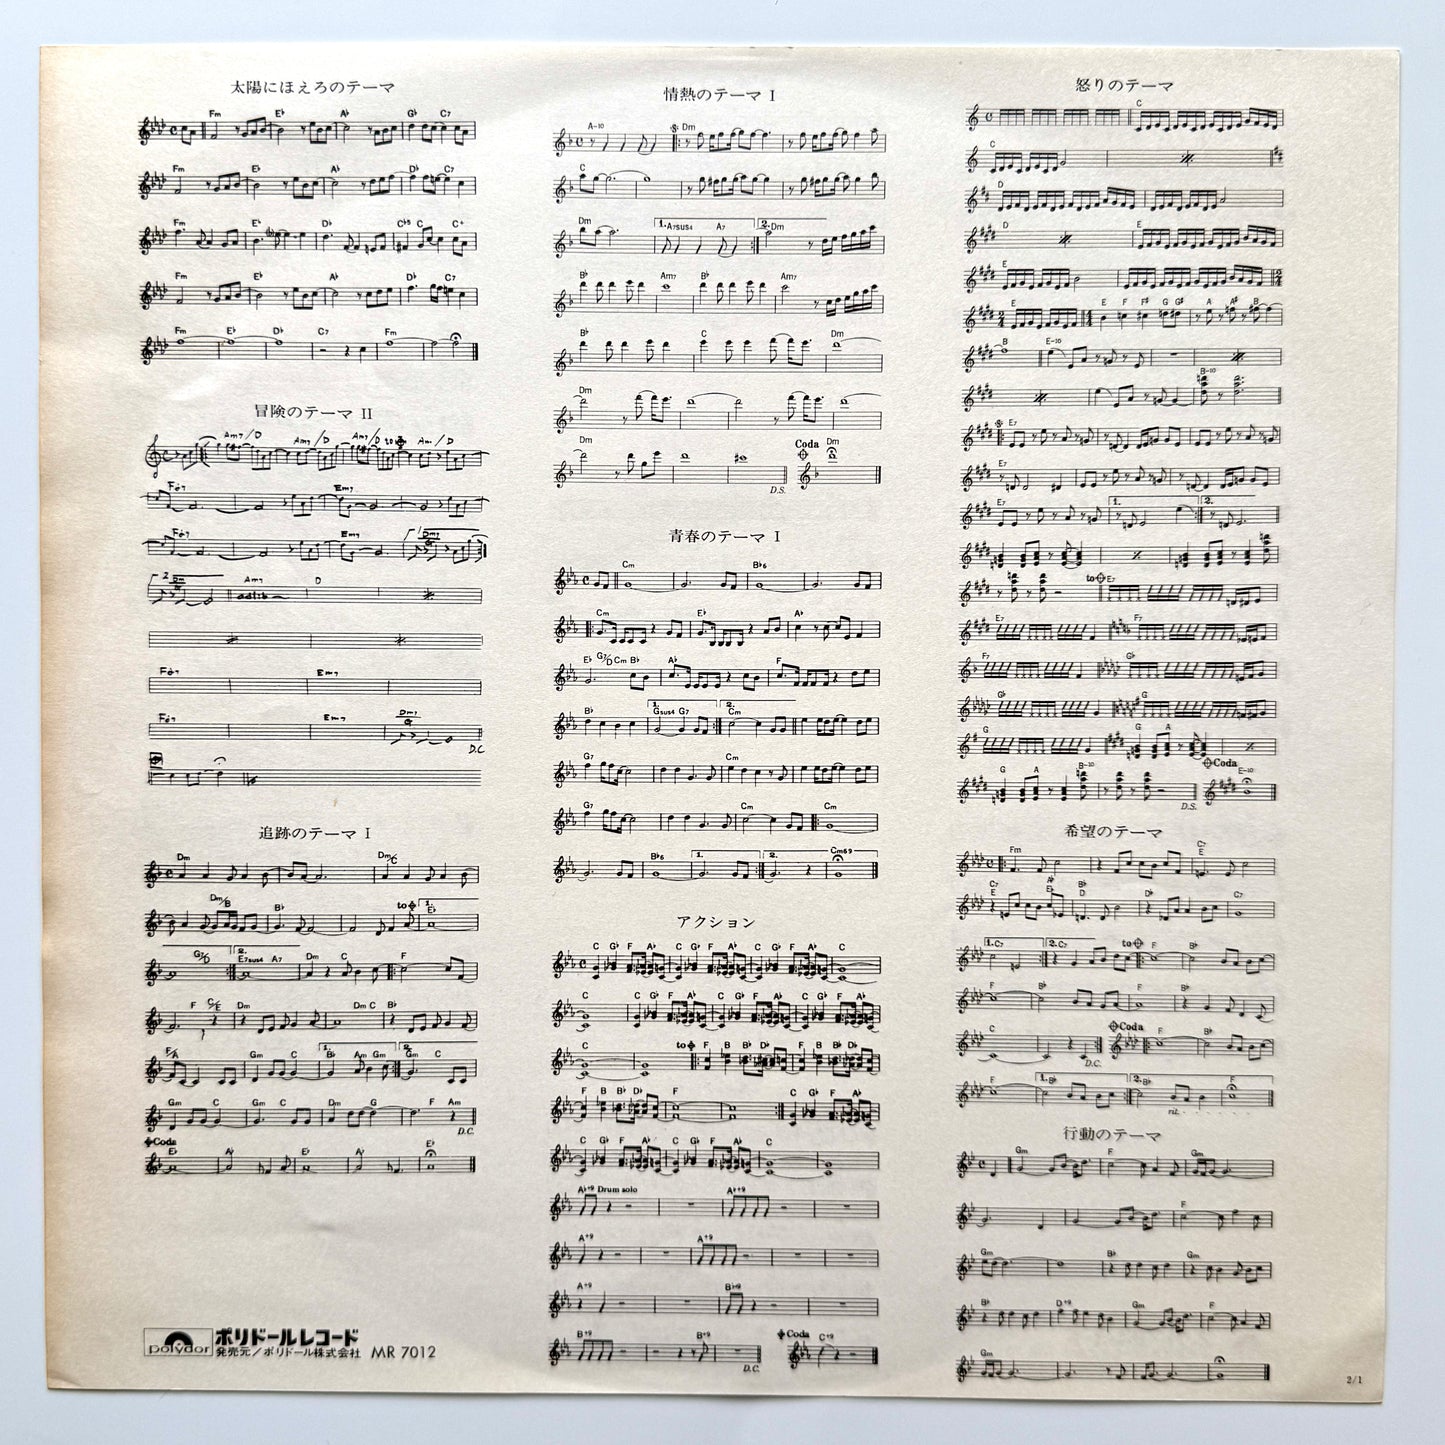 太陽にほえろのテーマ
Fm E♭ A♭ G♭ C7
Fm E♭ A♭ D♭ C7
Fm E♭ D♭ C♭5 C C+
Fm E♭ A♭ D♭ C7
Fm E♭ D♭ C7 Fm
冒険のテーマ II
Am7/D Am7/D Am7/D to Am7/D
Em7
Em7 1. Dm7
2. Dm Am7 D
Em7
Em7 Dm7
D.C
追跡のテーマ I
Dm Dm/C
Dm/B B♭ to 1. E♭
G7/D 2. E7sus4 A7 Dm C F
F C/E Dm Dm C B♭
F/A Gm C 1. B♭ Am Gm 2. Gm C
Gm C Gm C Dm G F Am
D.C.
Coda
E♭ A♭ E♭ A♭ E♭
polydor
ポリドールレコード
発売元/ポリドール株式会社 MR 7012
情熱のテーマ I
A-10 Dm
C
Dm 1. A7sus4 A7 2. Dm
B♭ Am7 B♭ Am7
B♭ C Dm
Dm
Dm Coda Dm
D.S.
青春のテーマ I
Cm B♭6
Cm E♭ A♭
E♭ G7/D Cm B♭ A♭
B♭ 1. Gsus4 G7 2. Cm
G7 Cm
G7 Cm Cm
B♭6 1. 2. Cm69
アクション
C G♭ F A♭ C G♭ F A♭ C G♭ F A♭ C
C C G♭ F A♭ C G♭ F A♭ C G♭ F A♭
C to F B B♭ D♭ F B B♭ D♭
F B B♭ D♭ F C G♭ F A♭
C G♭ F A♭ C G♭ F A♭ C
A♭+9 Drum solo A♭+9
A+9 A+9
A+9 B♭+9
B+9 B+9 Coda C+9
D.C.
怒りのテーマ
C
C
D
D E
E
E E F F♯ G G♯ A A♯ B
E-10
B-10
E7
E7
E7 1. 2.
to E7
E7 F7
F7 G♭
G♭ G
G G A
Coda
G A B-10 E-10
D.S.
希望のテーマ
Fm C7/E
C7 E♭ A♭ B♭/D D♭ C7
1. C7 2. C7 to F B♭
F B♭
C Coda F B♭
D.C.
F 1. B♭ 2. B♭ F
rit.
行動のテーマ
Gm F Gm
F
Gm B♭ Gm
B♭ D+9 Gm F
Gm
2/1